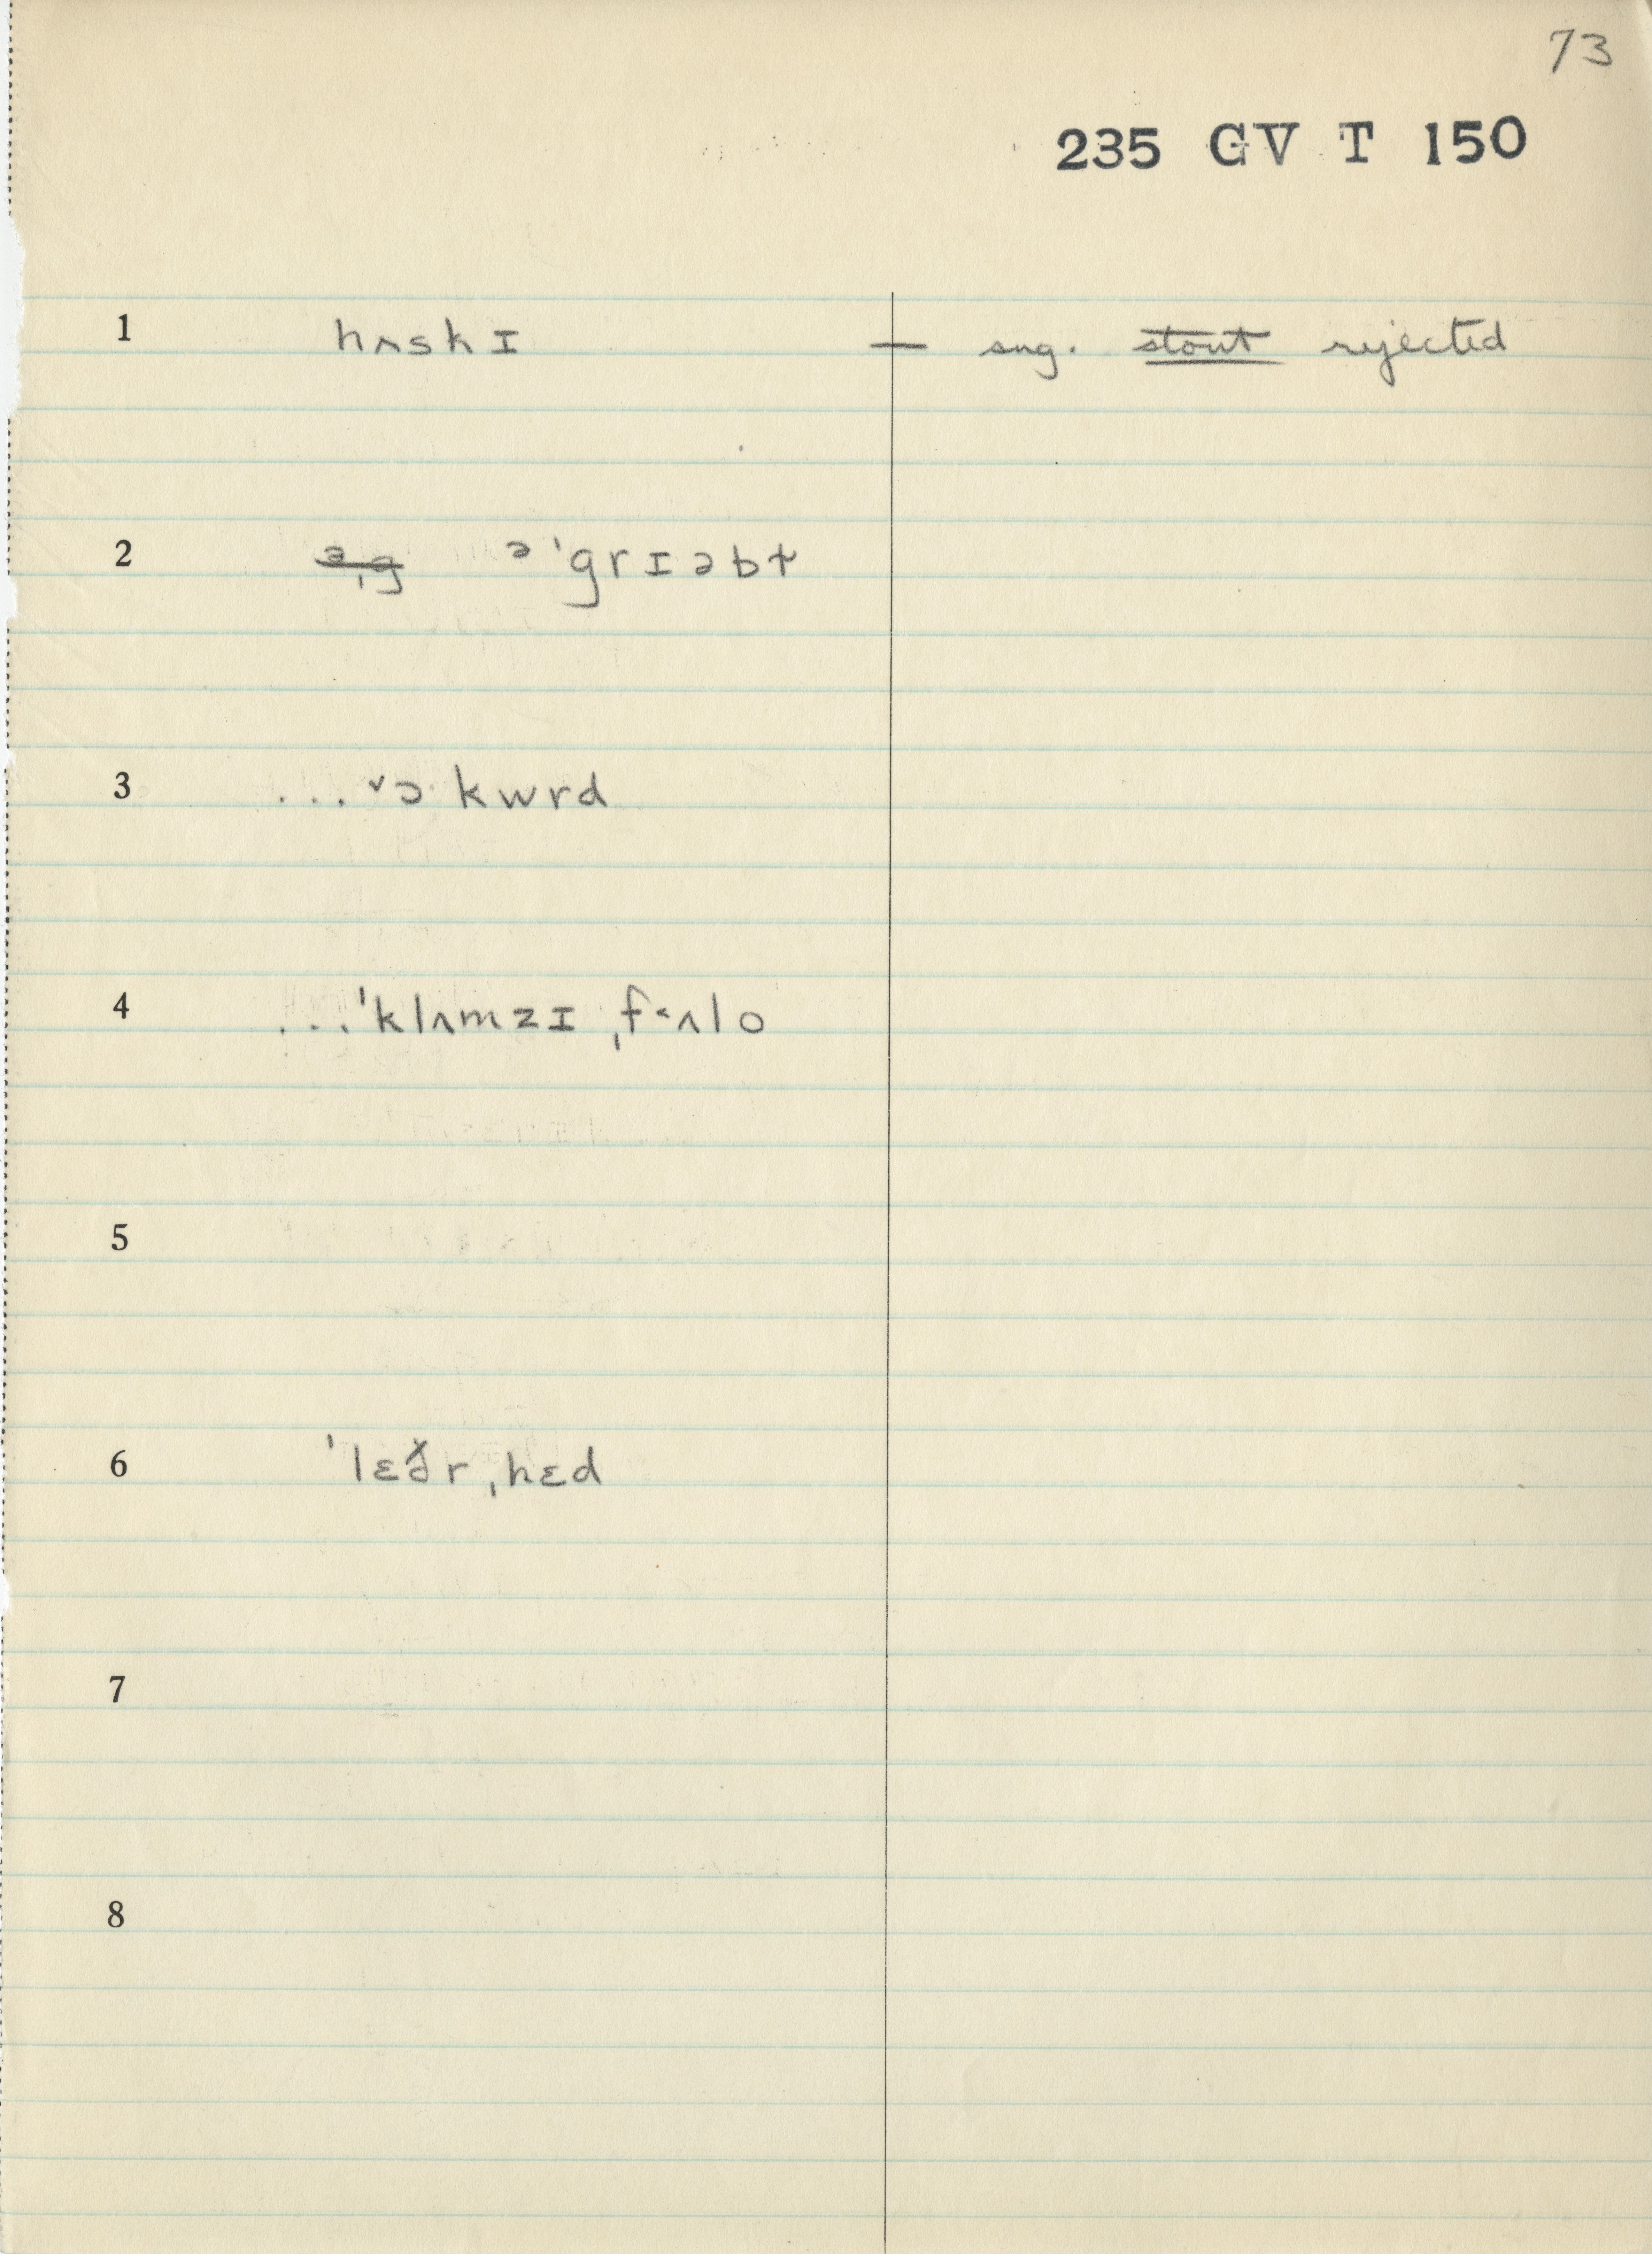 73
235 GV T 150
1 hʌskɪ — sug. stout rejected
2 ə'grɪəbɫ
3 ...ɔkwrd
4 ...ˈklʌmzɪ ˌf˂ʌlo
5
6 ˈlɛðr ˌhɛd
7
8